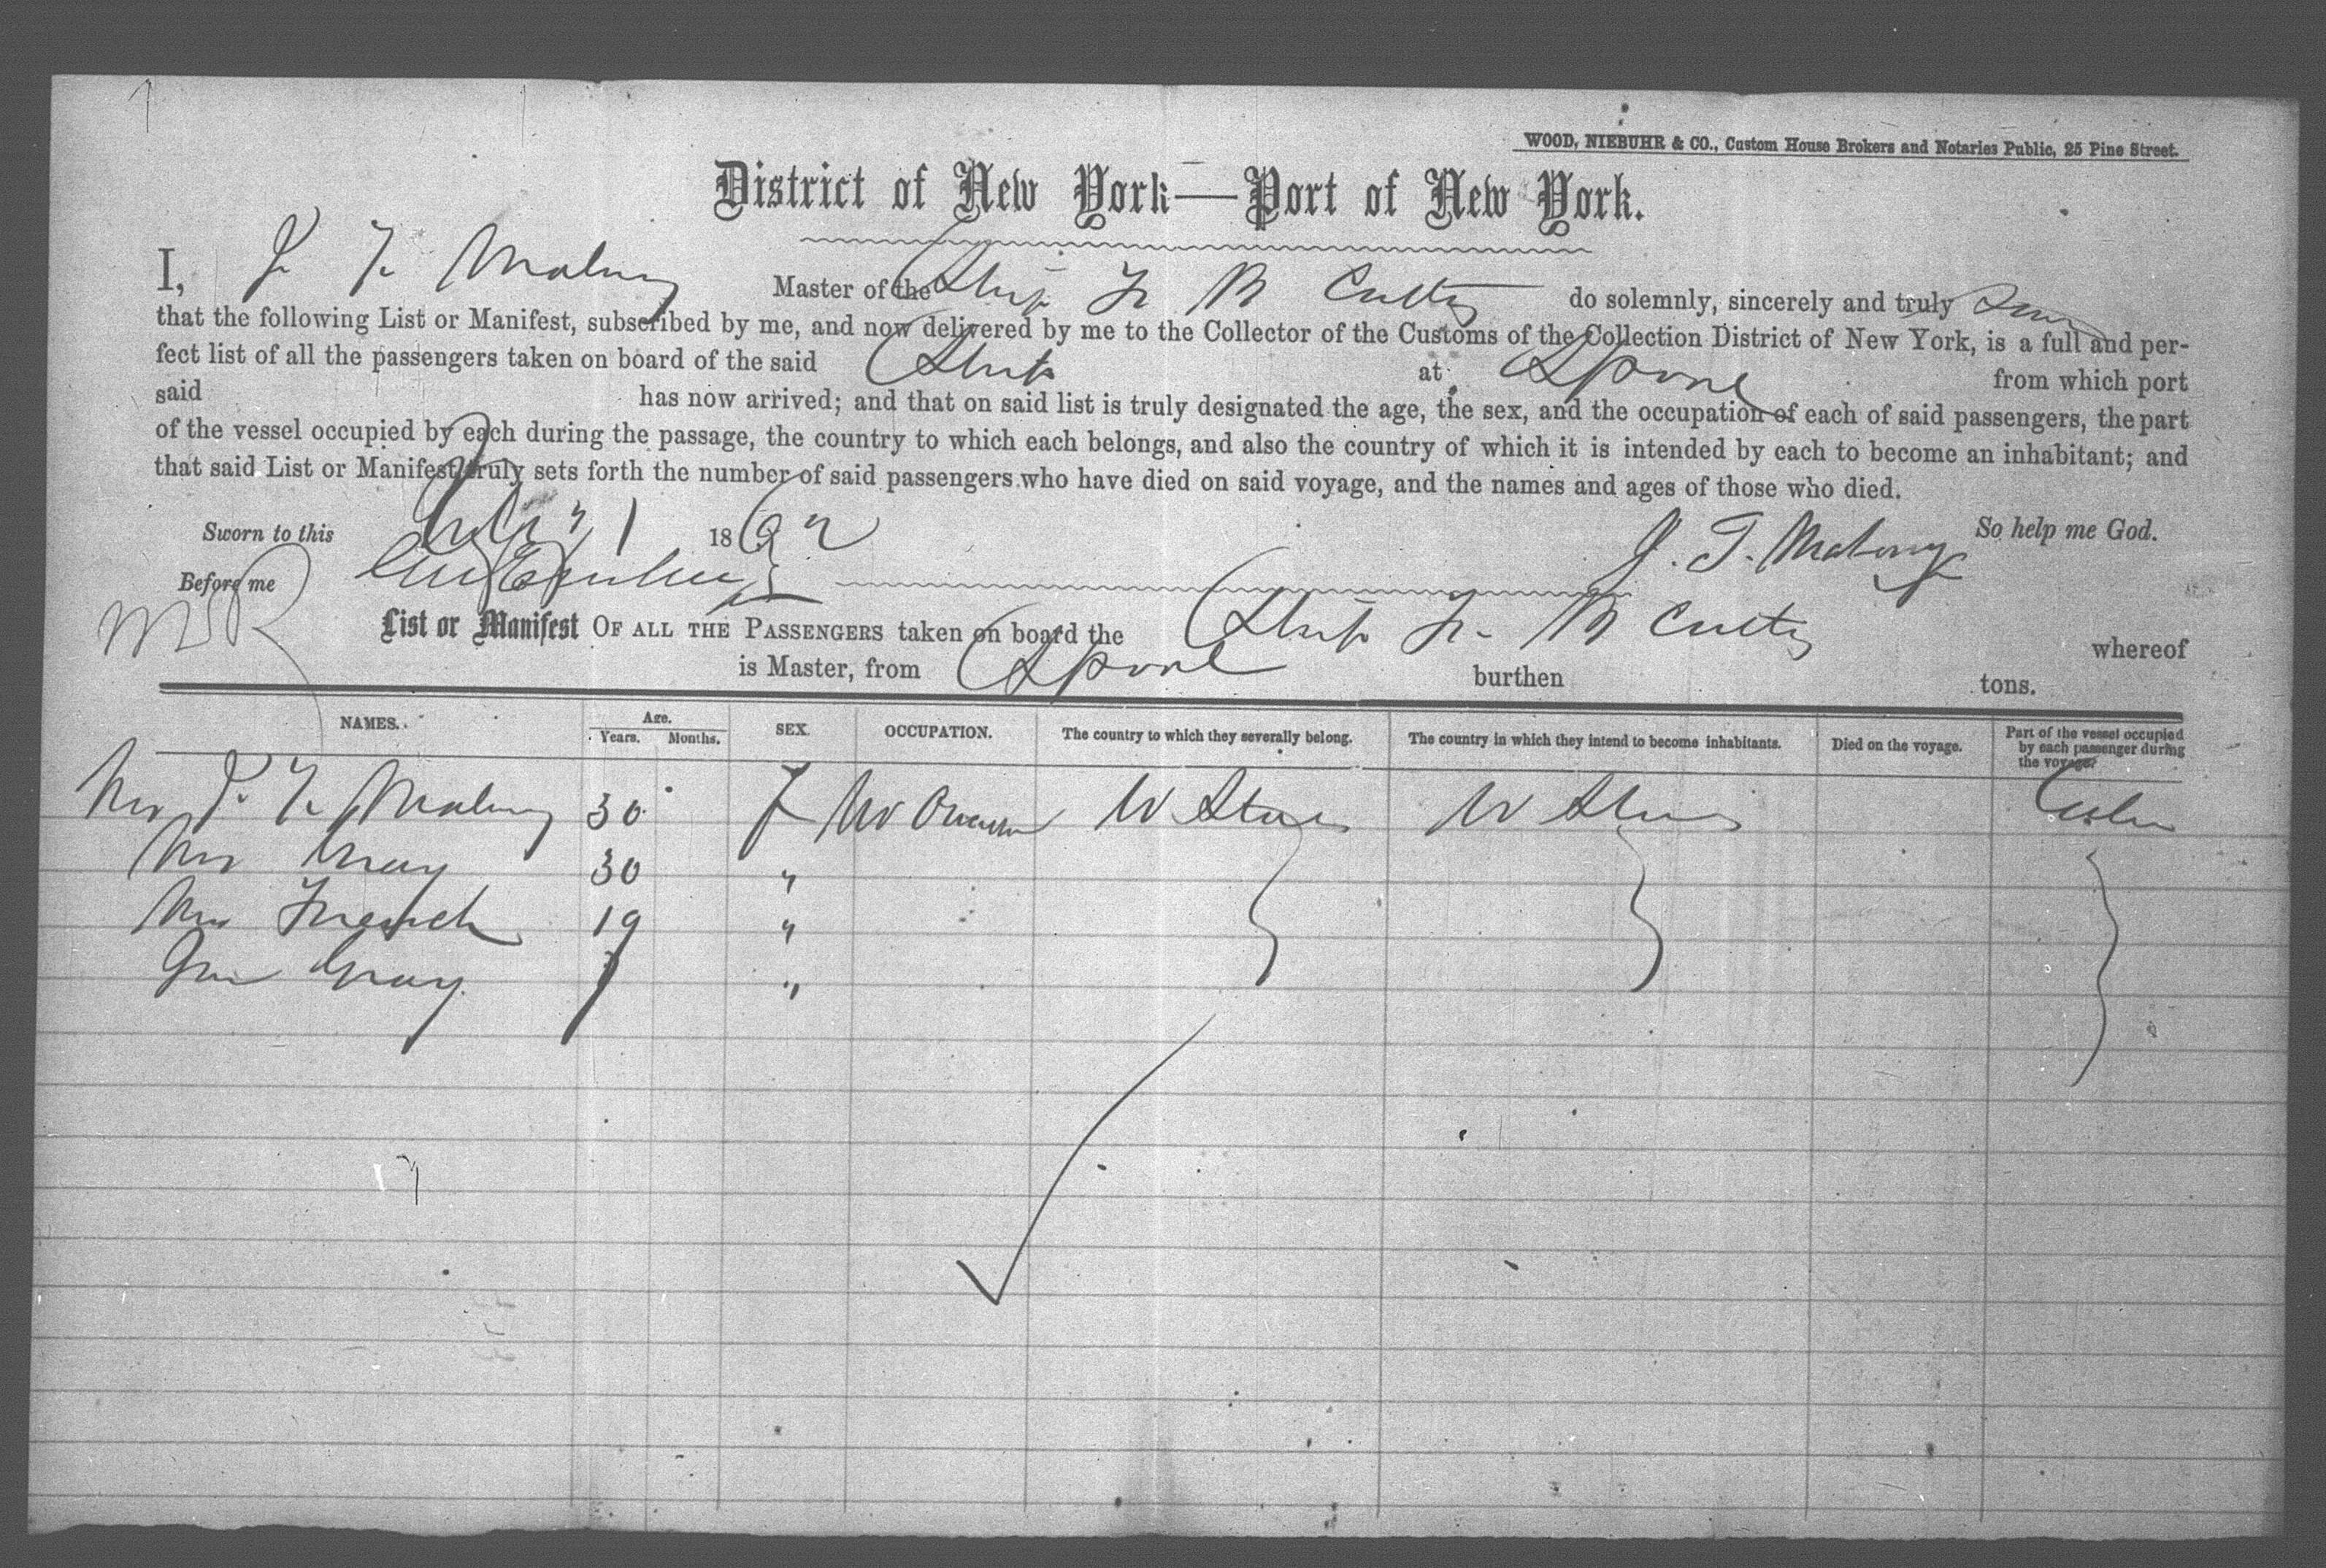 WOOD, NIEBUHR & CO., Custom House Brokers and Notaries Public, 25 Pine Street.
District of New York—Port of New York.
I, J. T. Malony Master of the Ship F. B. Cutting do solemnly, sincerely and truly Swear
that the following List or Manifest, subscribed by me, and now delivered by me to the Collector of the Customs of the Collection District of New York, is a full and per-
fect list of all the passengers taken on board of the said Ship at Lpool from which port
said has now arrived; and that on said list is truly designated the age, the sex, and the occupation of each of said passengers, the part
of the vessel occupied by each during the passage, the country to which each belongs, and also the country of which it is intended by each to become an inhabitant; and
that said List or Manifest truly sets forth the number of said passengers who have died on said voyage, and the names and ages of those who died.
Sworn to this 1 1862 J. T. Malony So help me God.
Before me
List or Manifest OF ALL THE PASSENGERS taken on board the Ship F. B Cutting whereof
is Master, from Lpool burthen tons.
NAMES. Age. Years. Months. SEX. OCCUPATION. The country to which they severally belong. The country in which they intend to become inhabitants. Died on the voyage. Part of the vessel occupied by each passenger during the voyage.
Mrs J. T. Malony 30 F U States U States Cabin
Mrs Gray 30 "
Mrs French 19 "
Gray 7 "